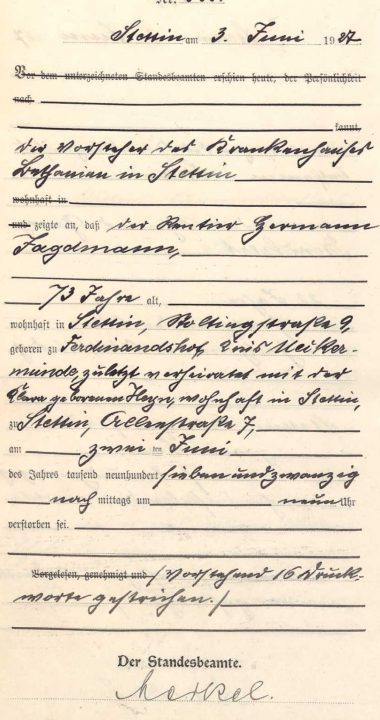 Stettin am 3. Juni 1927
Vor dem unterzeichneten Standesbeamten erschien heute, der Persönlichkeit
nach
kannt,
der Vorsteher des Krankenhauses
Bethanien in Stettin
wohnhaft in
und zeigte an, daß der Rentier Hermann
Jagdmann,
73 Jahre alt,
wohnhaft in Stettin, Stoltingstraße 9,
geboren zu Ferdinandshof, Kreis Uecker-
münde, zuletzt verheiratet mit der
Klara geborenen, wohnhaft in Stettin,
zu Stettin, Alleestraße 7,
am zwei ten Juni
des Jahres tausend neunhundert sieben und zwanzig
nach mittags um neun Uhr
verstorben sei.
Vorgelesen, genehmigt und / Vorstehend 16 Druck-
worte gestrichen. /
Der Standesbeamte.
Merkel.